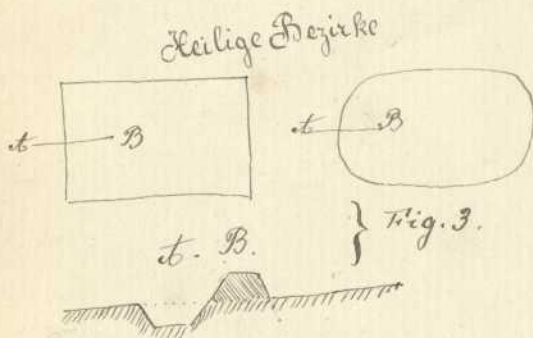 Heilige Bezirke
A B
A B
A. B.
Fig. 3.